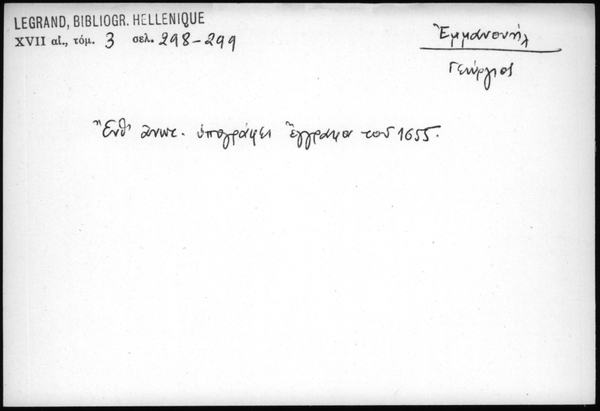 LEGRAND, BIBLIOGR. HELLENIQUE
XVII αἰ., τόμ. 3 σελ. 298-299
Ἐμμανουήλ
Γεώργιος
Ἔνθ' ἀνωτ. ὑπογράφει ἔγγραφα τοῦ 1655.